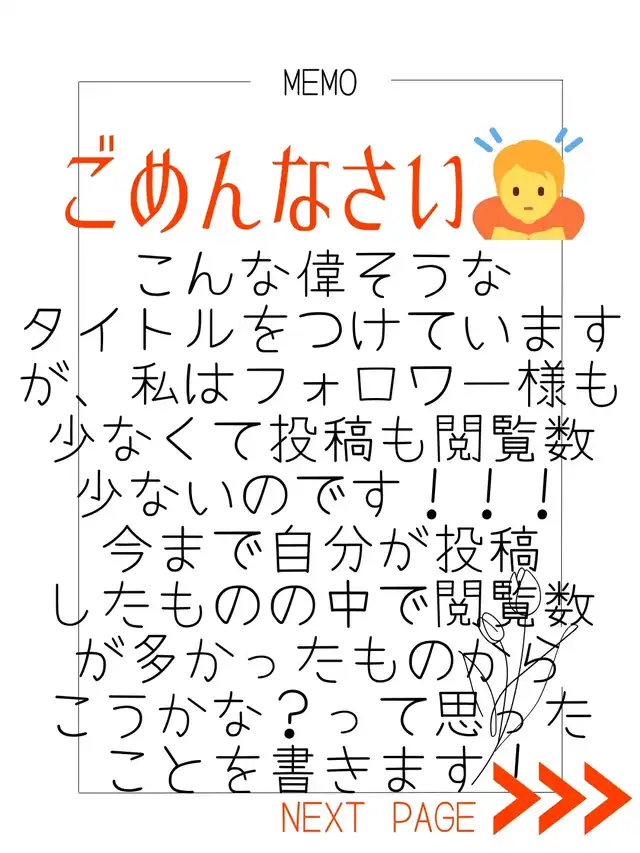 MEMO
ごめんなさい
こんな偉そうな
タイトルをつけています
が、私はフォロワー様も
少なくて投稿も閲覧数
少ないのです！！！
今まで自分が投稿
したものの中で閲覧数
が多かったものから
こうかな？って思った
ことを書きます！
NEXT PAGE